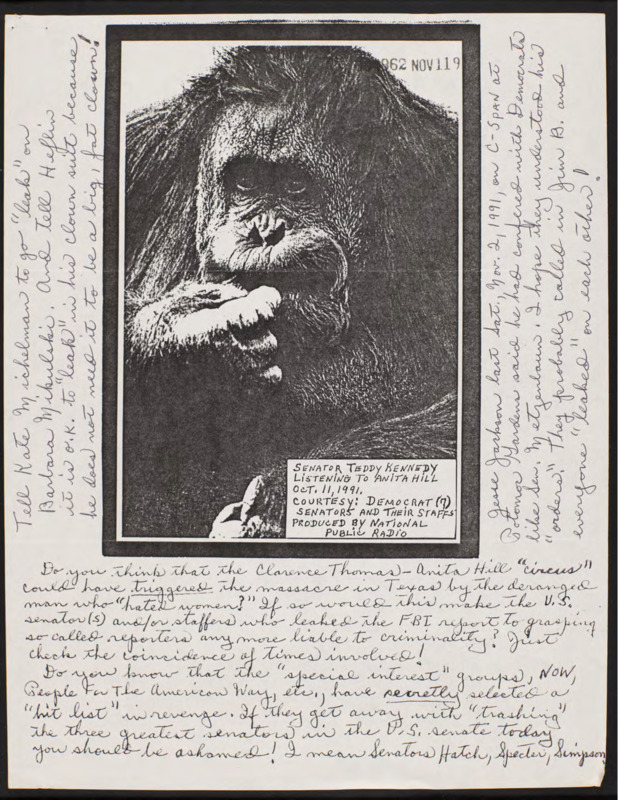 962 NOV 119
Tell Kate Michelman to go "leak" on
Barbara Mikulski. And tell Heflin
it is o.k. to "leak" in his clown suit because
he does not need it to be a big, fat clown!
SENATOR TEDDY KENNEDY
LISTENING TO ANITA HILL
OCT. 11, 1991.
COURTESY: DEMOCRAT (7)
SENATORS AND THEIR STAFFS
PRODUCED BY NATIONAL
PUBLIC RADIO
Jesse Jackson last Sat., Nov. 2, 1991, on C-SPAN at
Gardens said he had conferred with Democrats
like Sen. Metzenbaum. I hope they understood his
"orders." They probably called in Jim B. and
everyone "leaked" on each other!
Do you think that the Clarence Thomas-Anita Hill "circus"
could have triggered the massacre in Texas by the deranged
man who "hated women?" If so would this make the U.S.
senator(s) and/or staffers who leaked the FBI report to grasping
so called reporters any more liable to criminality? Just
check the coincidence of times involved!
Do you know that the "special interest" groups, NOW,
People For The American Way, etc., have secretly selected a
"hit list" in revenge. If they get away with "trashing"
the three greatest senators in the U.S. senate today
you should be ashamed! I mean Senators Hatch, Specter, Simpson